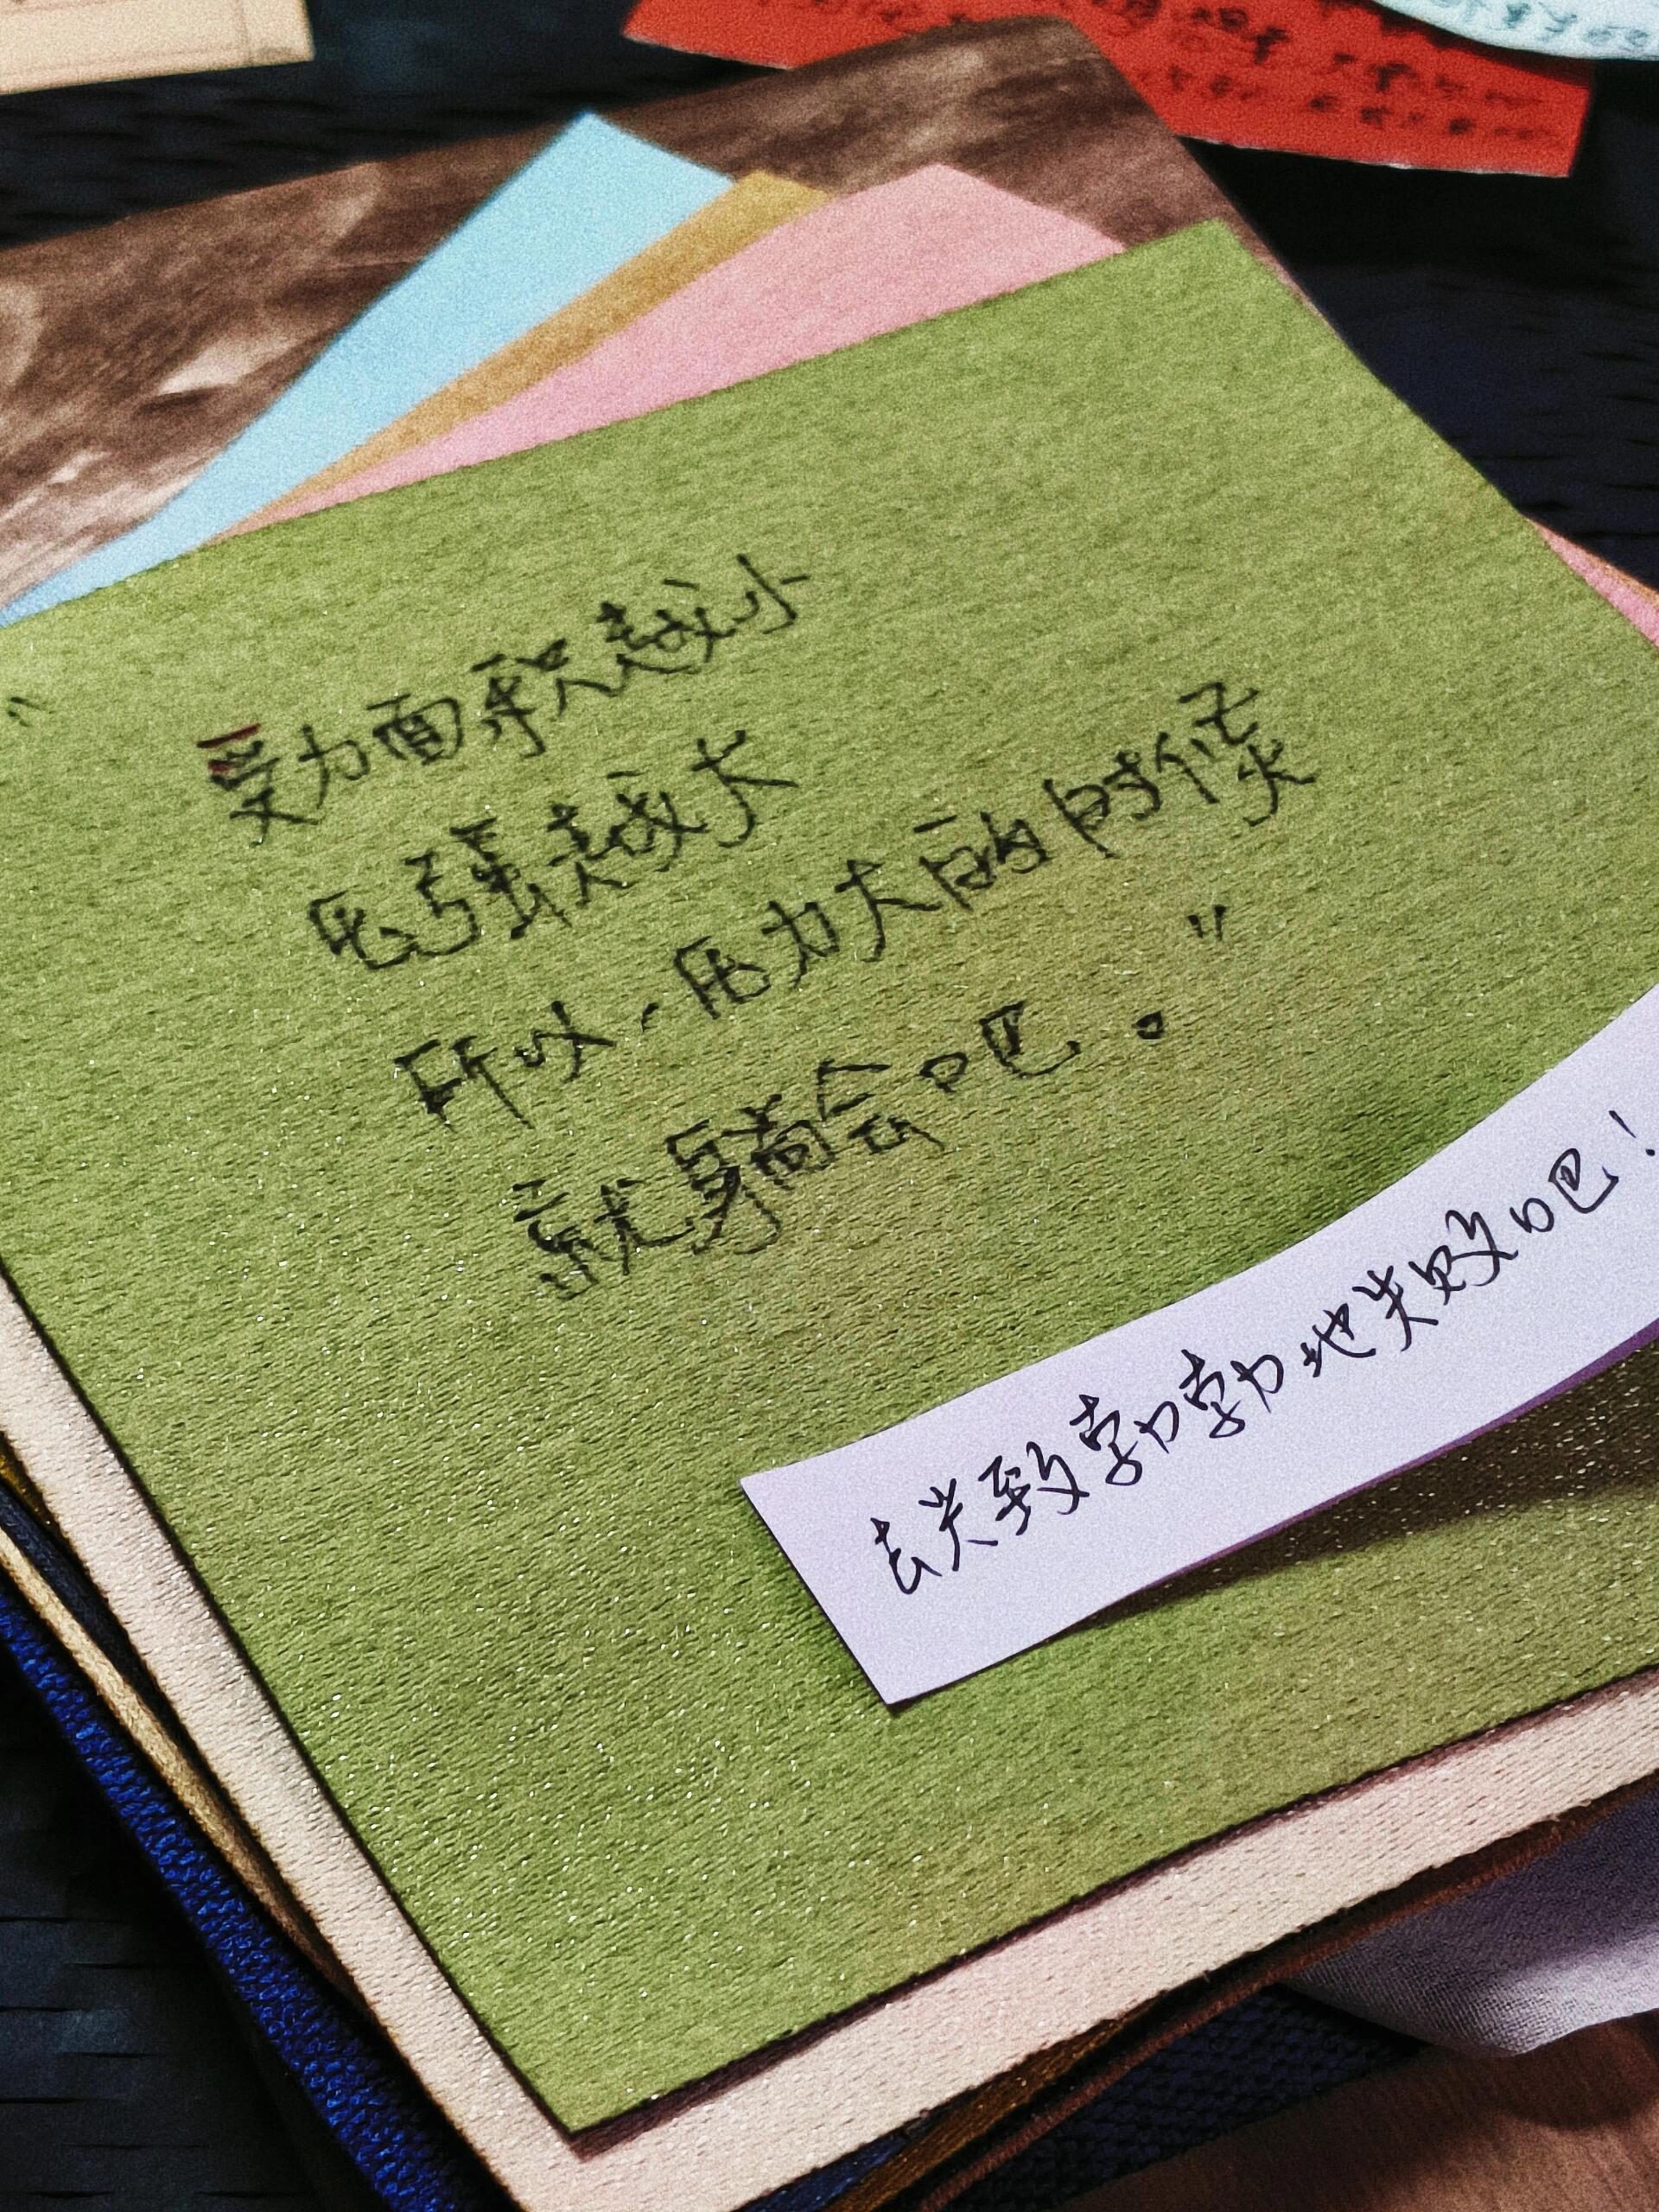 "受力面积越小
压强越大
所以，压力大的时候
就躺会吧。"
去兴致勃勃地失败吧！